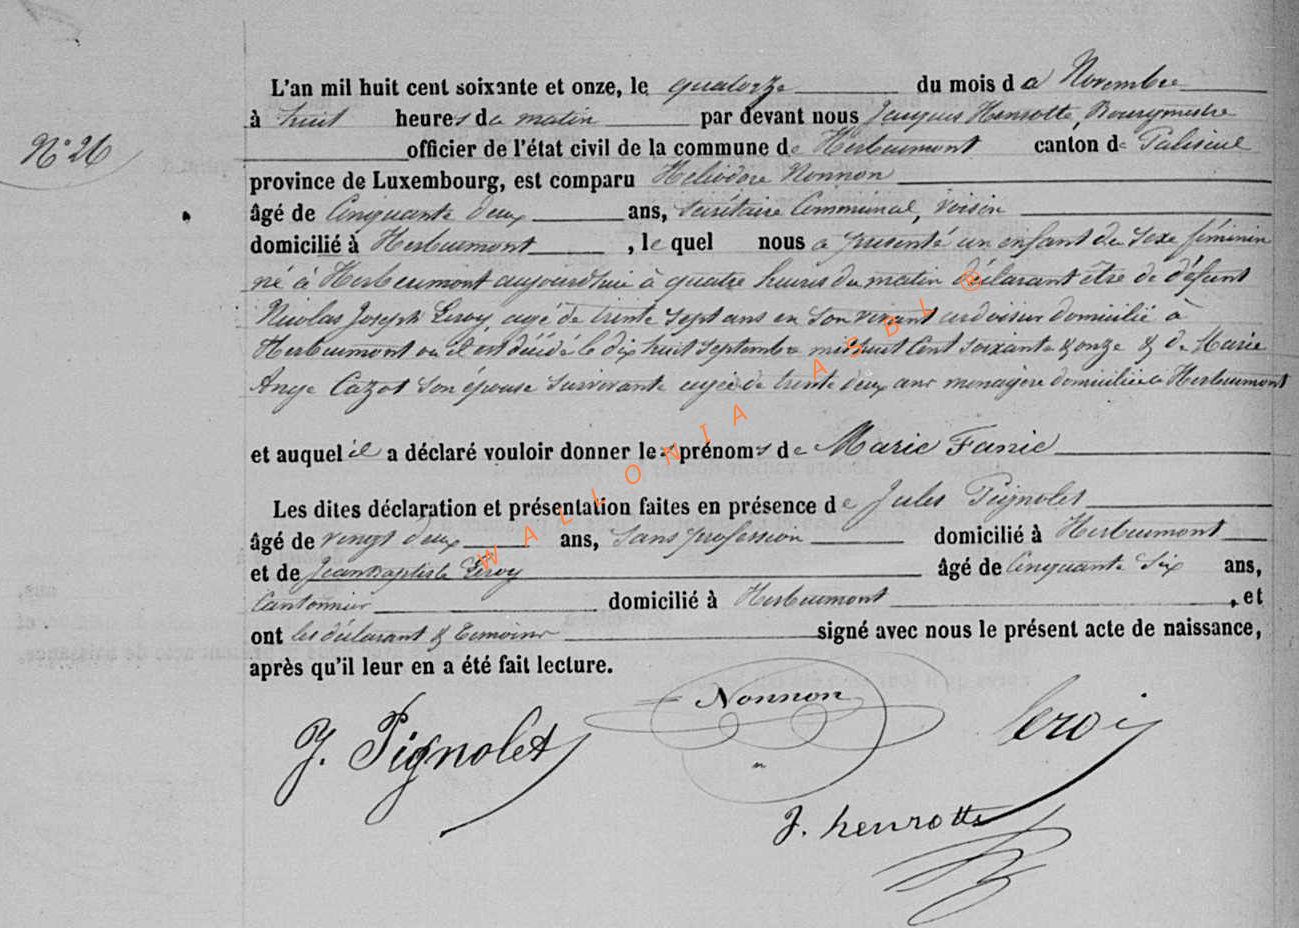 L'an mil huit cent soixante et onze, le quatorze du mois de Novembre
N° 26
à huit heures du matin par devant nous Jacques Henrotte, Bourgmestre
officier de l'état civil de la commune de Herbeumont canton de Paliseul
province de Luxembourg, est comparu Heliodore Nonnon
âgé de Cinquante deux ans, Secrétaire Communal, voisin
domicilié à Herbeumont, le quel nous a présenté un enfant du Sexe féminin
né à Herbeumont aujourdhui à quatre heures du matin déclarant être de défunt
Nicolas Joseph Leroy, agé de trente sept ans en son vivant ardoisier domicilié à
Herbeumont ou il est décédé le dix huit Septembre mil huit Cent soixante & onze & de Marie
Ange Cazot son épouse survivante agée de trente deux ans menagère domiciliée à Herbeumont
et auquel il a déclaré vouloir donner les prénoms de Marie Fanie
Les dites déclaration et présentation faites en présence de Jules Pignolet
âgé de vingt deux ans, Sans profession domicilié à Herbeumont
et de Jean Baptiste Leroy âgé de Cinquante Six ans,
Cantonnier domicilié à Herbeumont, et
ont les déclarant & Temoins signé avec nous le présent acte de naissance,
après qu'il leur en a été fait lecture.
J. Pignolet Nonnon leroi
J. henrotte
WALLONIA ASBL ®